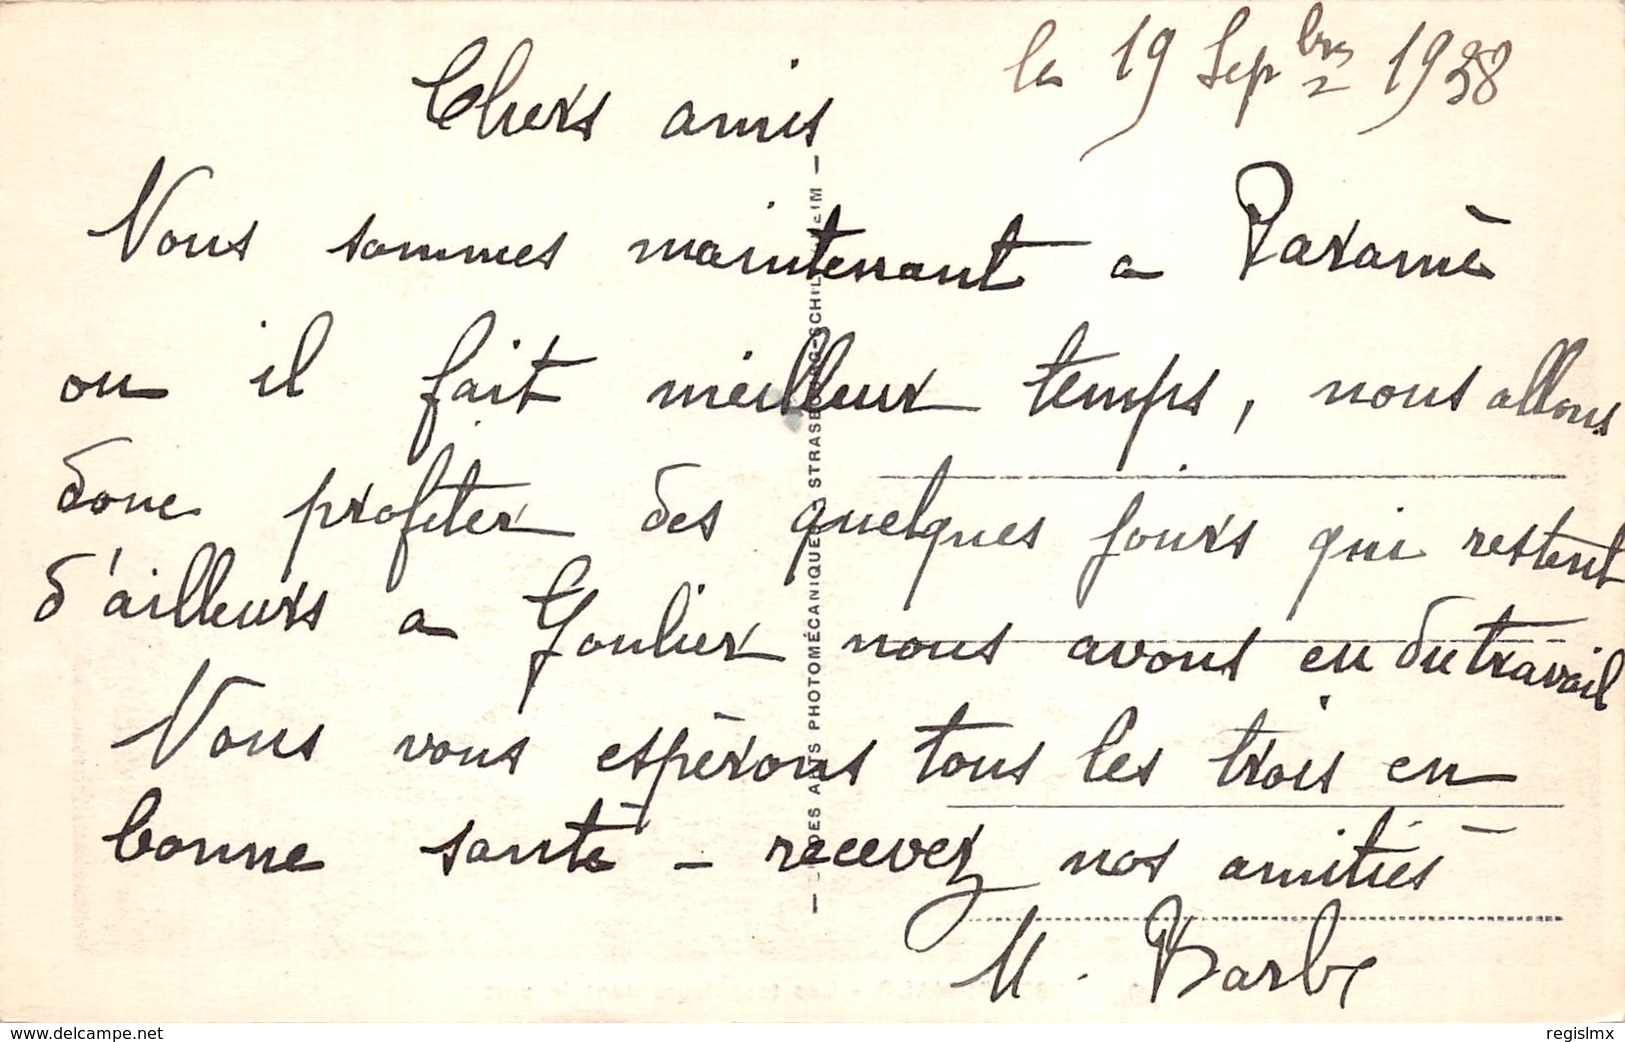 le 19 Sepbre 1938
Chers amis
Nous sommes maintenant a Paramè
ou il fait meilleur temps, nous allons
donc profiter des quelques jours qui restent
d'ailleurs a Goulier nous avons eu du travail
Nous vous espèrons tous les trois en
bonne santè - recevez nos amitiés
M. Barbe
DES ARTS PHOTOMÉCANIQUES STRASBOURG-SCHILTIGHEIM
www.delcampe.net
regislmx